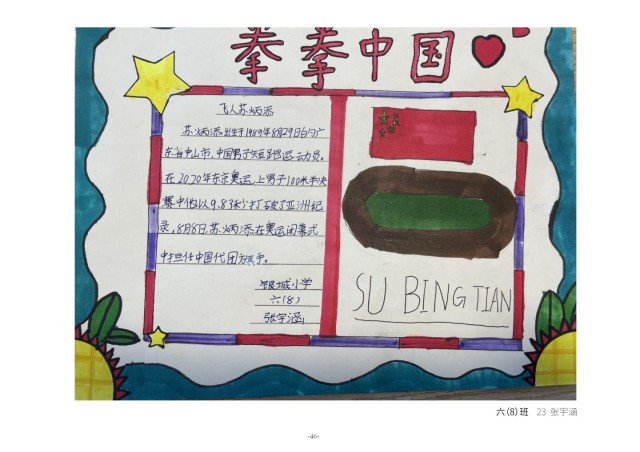 拳拳中国
飞人苏炳添
苏炳添出生于1989年8月29日的广
东省中山市,中国男子短跑运动员。
在2020年东京奥运上男子100米半决
赛中他以9.83秒打破了亚洲纪
录,8月8日,苏炳添在奥运闭幕式
中担任中国代团旗手。
银城小学
六(8)
张宇涵
SU BING TIAN
六(8)班 23 张宇涵
-46-